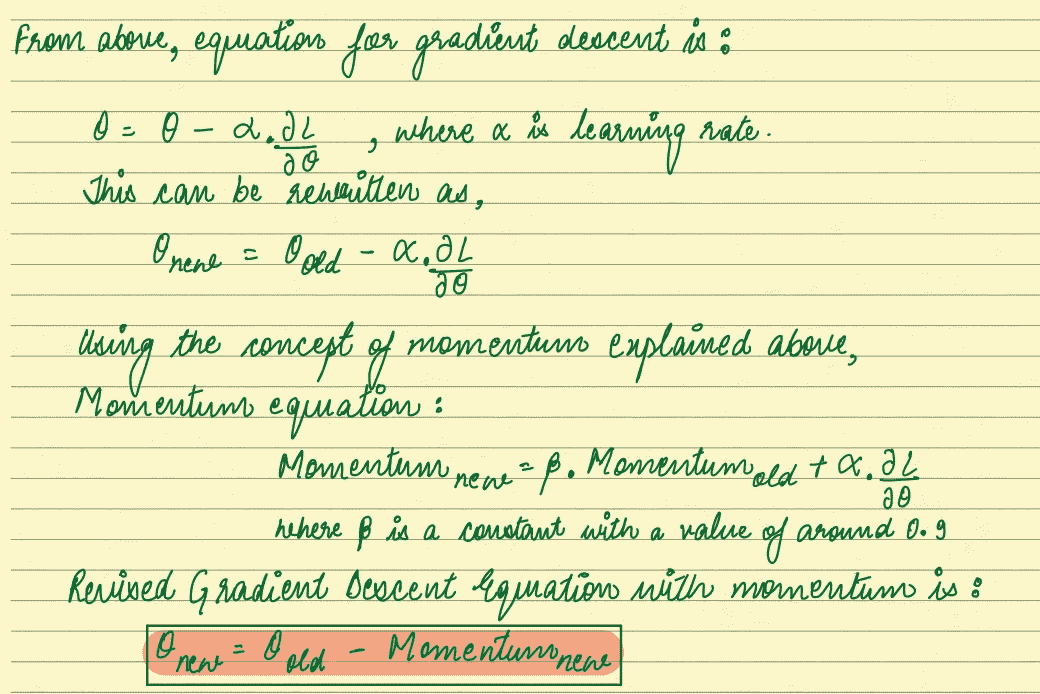 From above, equation for gradient descent is :
θ = θ - α. ∂L/∂θ , where α is learning rate.
This can be rewritten as,
θ new = θ old - α. ∂L/∂θ
Using the concept of momentum explained above,
Momentum equation :
Momentum new = β. Momentum old + α. ∂L/∂θ
where β is a constant with a value of around 0.9
Revised Gradient Descent Equation with momentum is :
θ new = θ old - Momentum new